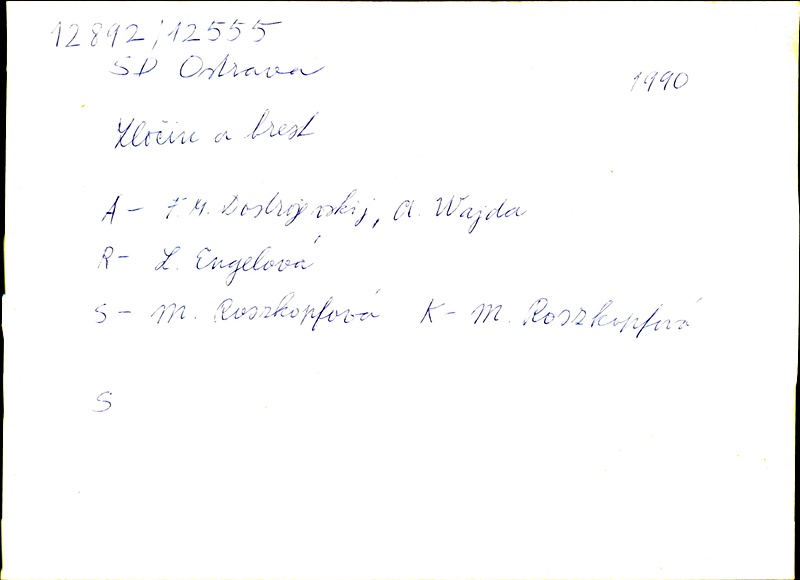 12892; 12555
SD Ostrava
1990
Zločin a trest
A - F. M. Dostojevskij, A. Wajda
R - L. Engelová
S - M. Roszkopfová K - M. Roszkopfová
S